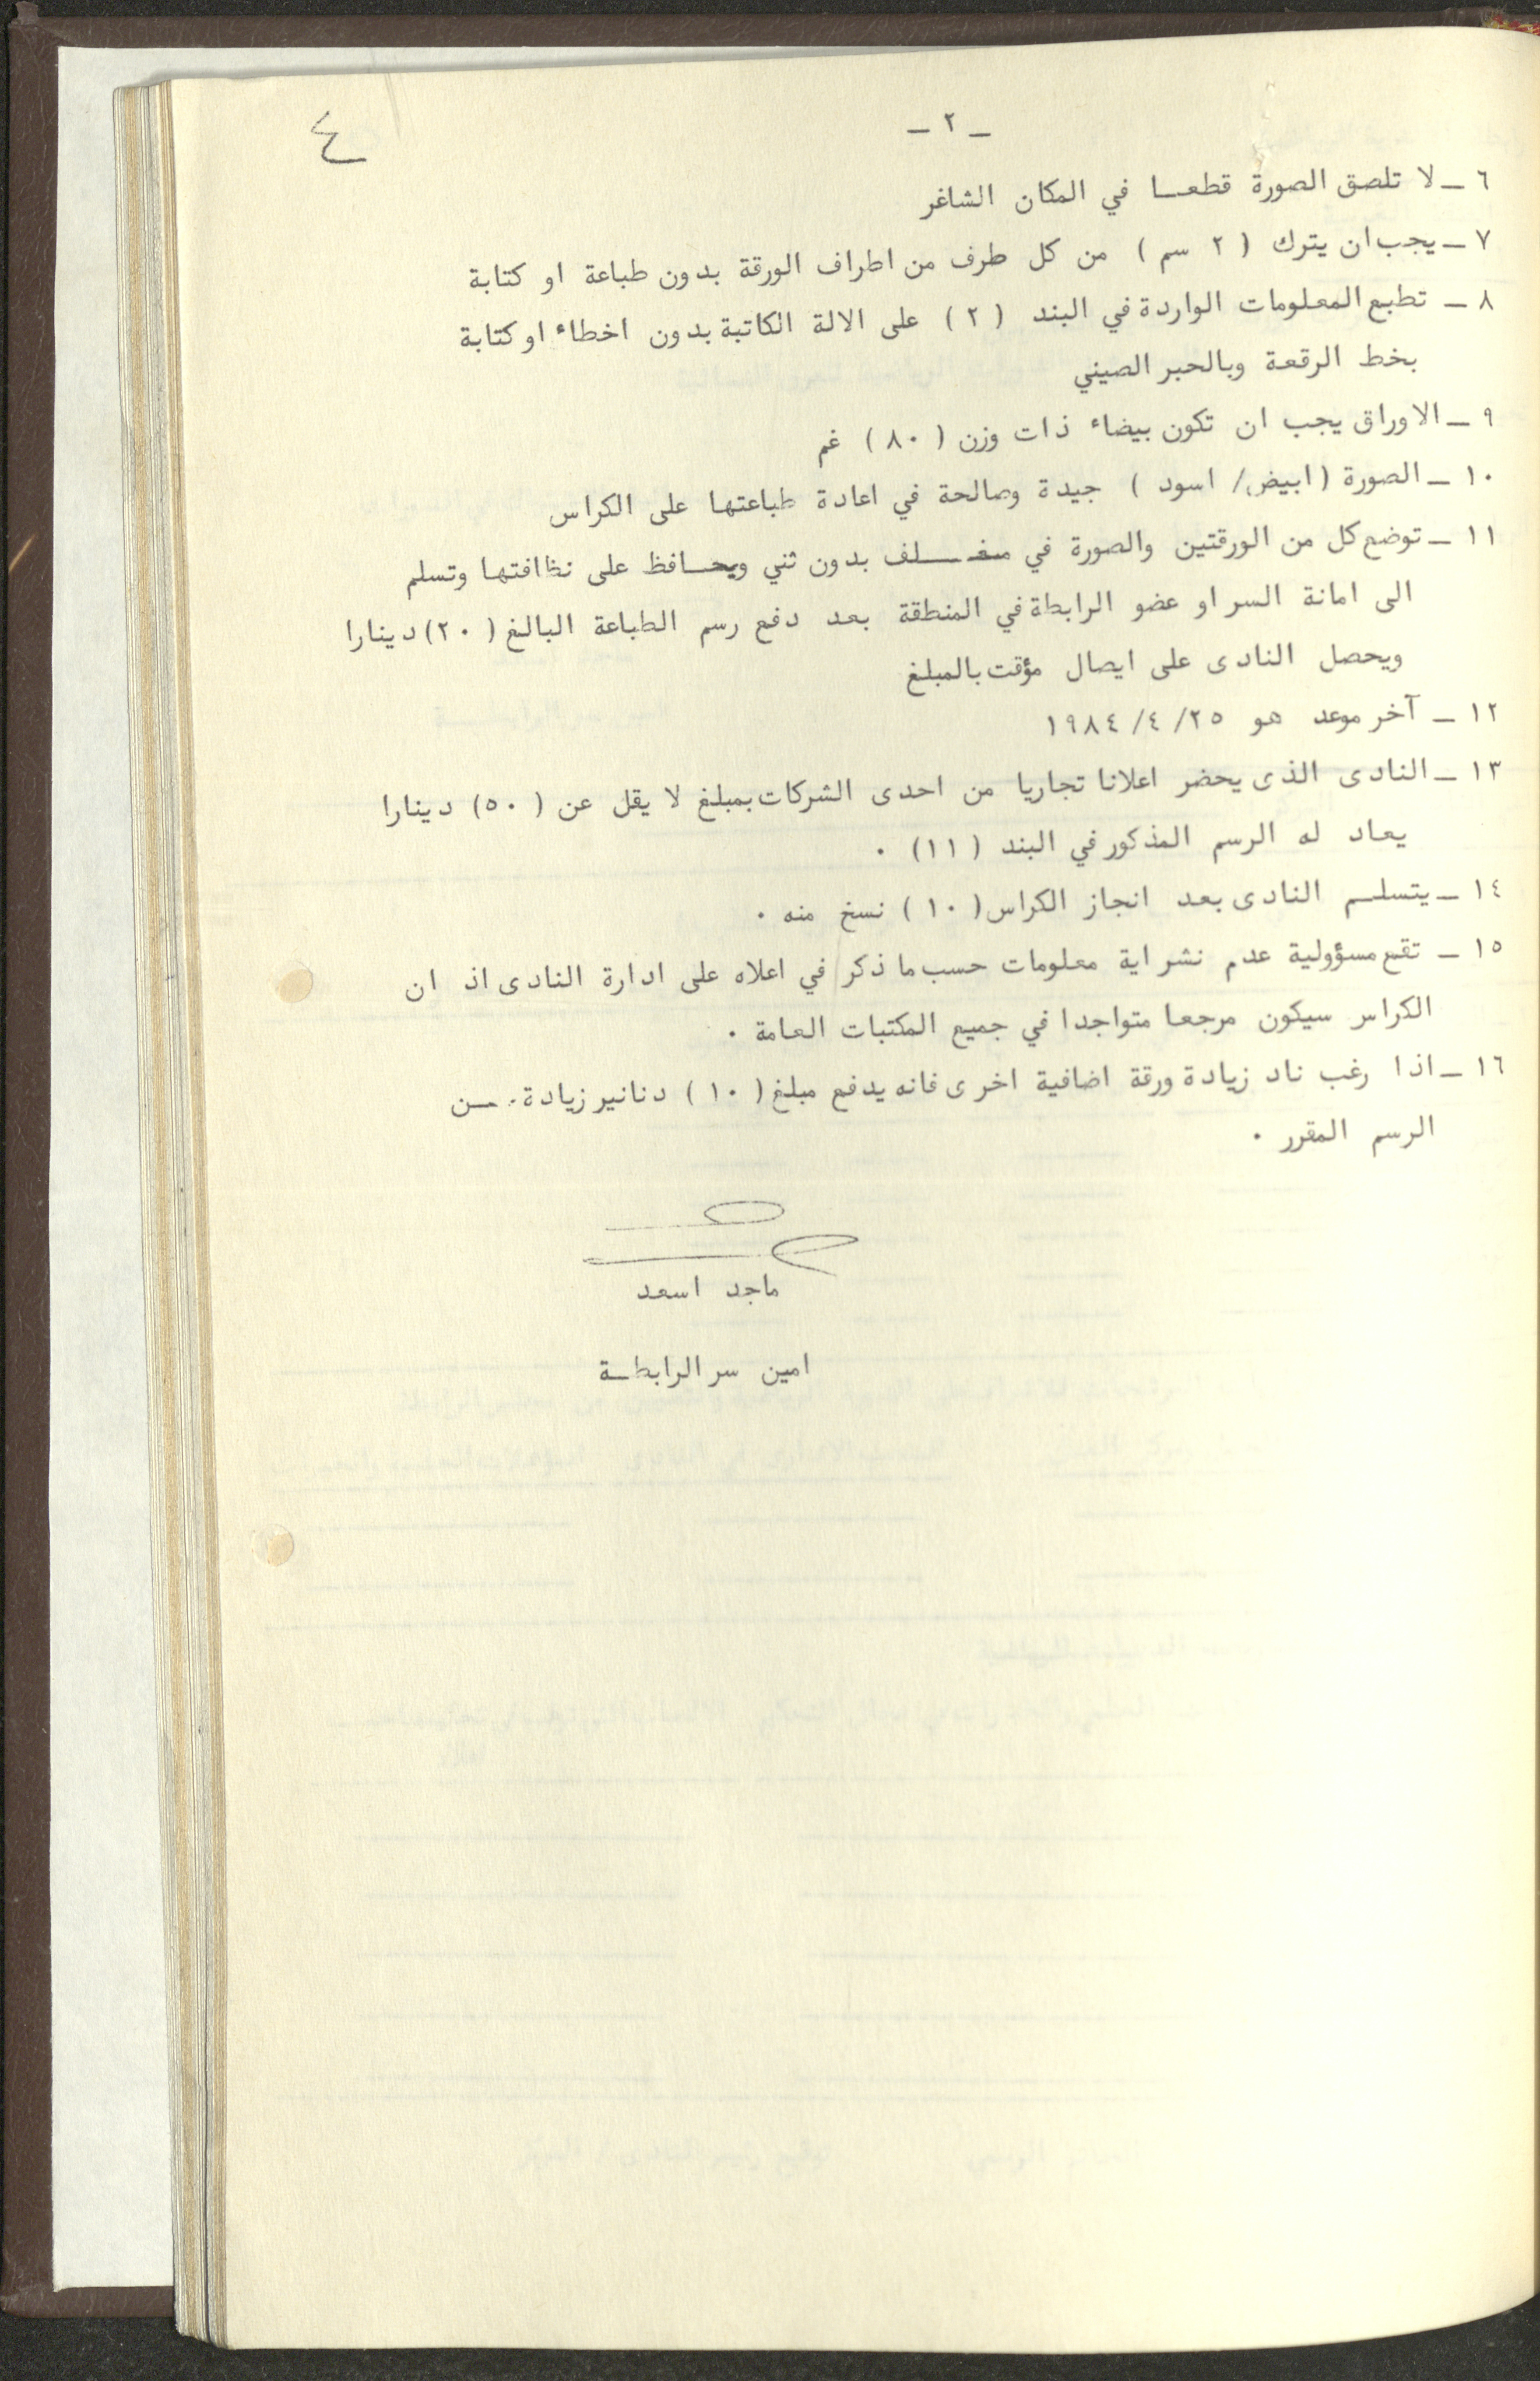 ٤
ـ ٢ ـ
٦ ـ لا تلصق الصورة قطعـــا في المكان الشاغر
٧ ـ يجب ان يترك ( ٢ سم ) من كل طرف من اطراف الورقة بدون طباعة او كتابة
٨ ـ تطبع المعلومات الواردة في البند ( ٢ ) على الالة الكاتبة بدون اخطاء او كتابة
بخط الرقعة وبالحبر الصيني
٩ ـ الاوراق يجب ان تكون بيضاء ذات وزن ( ٨٠ ) غم
١٠ ـ الصورة ( ابيض/ اسود ) جيدة وصالحة في اعادة طباعتها على الكراس
١١ ـ توضع كل من الورقتين والصورة في مغـــلف بدون ثني ويحــافظ على نظافتها وتسلم
الى امانة السر او عضو الرابطة في المنطقة بعد دفع رسم الطباعة البالغ ( ٢٠ ) دينارا
ويحصل النادى على ايصال مؤقت بالمبلغ
١٢ ـ آخر موعد هو ٢٥ /٤ /١٩٨٤
١٣ ـ النادى الذى يحضر اعلانا تجاريا من احدى الشركات بمبلغ لا يقل عن ( ٥٠ ) دينارا
يعاد له الرسم المذكور في البند ( ١١ ) .
١٤ ـ يتسلــم النادى بعد انجاز الكراس ( ١٠ ) نسخ منه .
١٥ ـ تقع مسؤولية عدم نشر اية معلومات حسب ما ذكر في اعلاه على ادارة النادى اذ ان
الكراس سيكون مرجعا متواجدا في جميع المكتبات العامة .
١٦ ـ اذا رغب ناد زيادة ورقة اضافية اخرى فانه يدفع مبلغ ( ١٠ ) دنانير زيادة
الرسم المقرر .
ماجد اسعد
امين سر الرابطــة